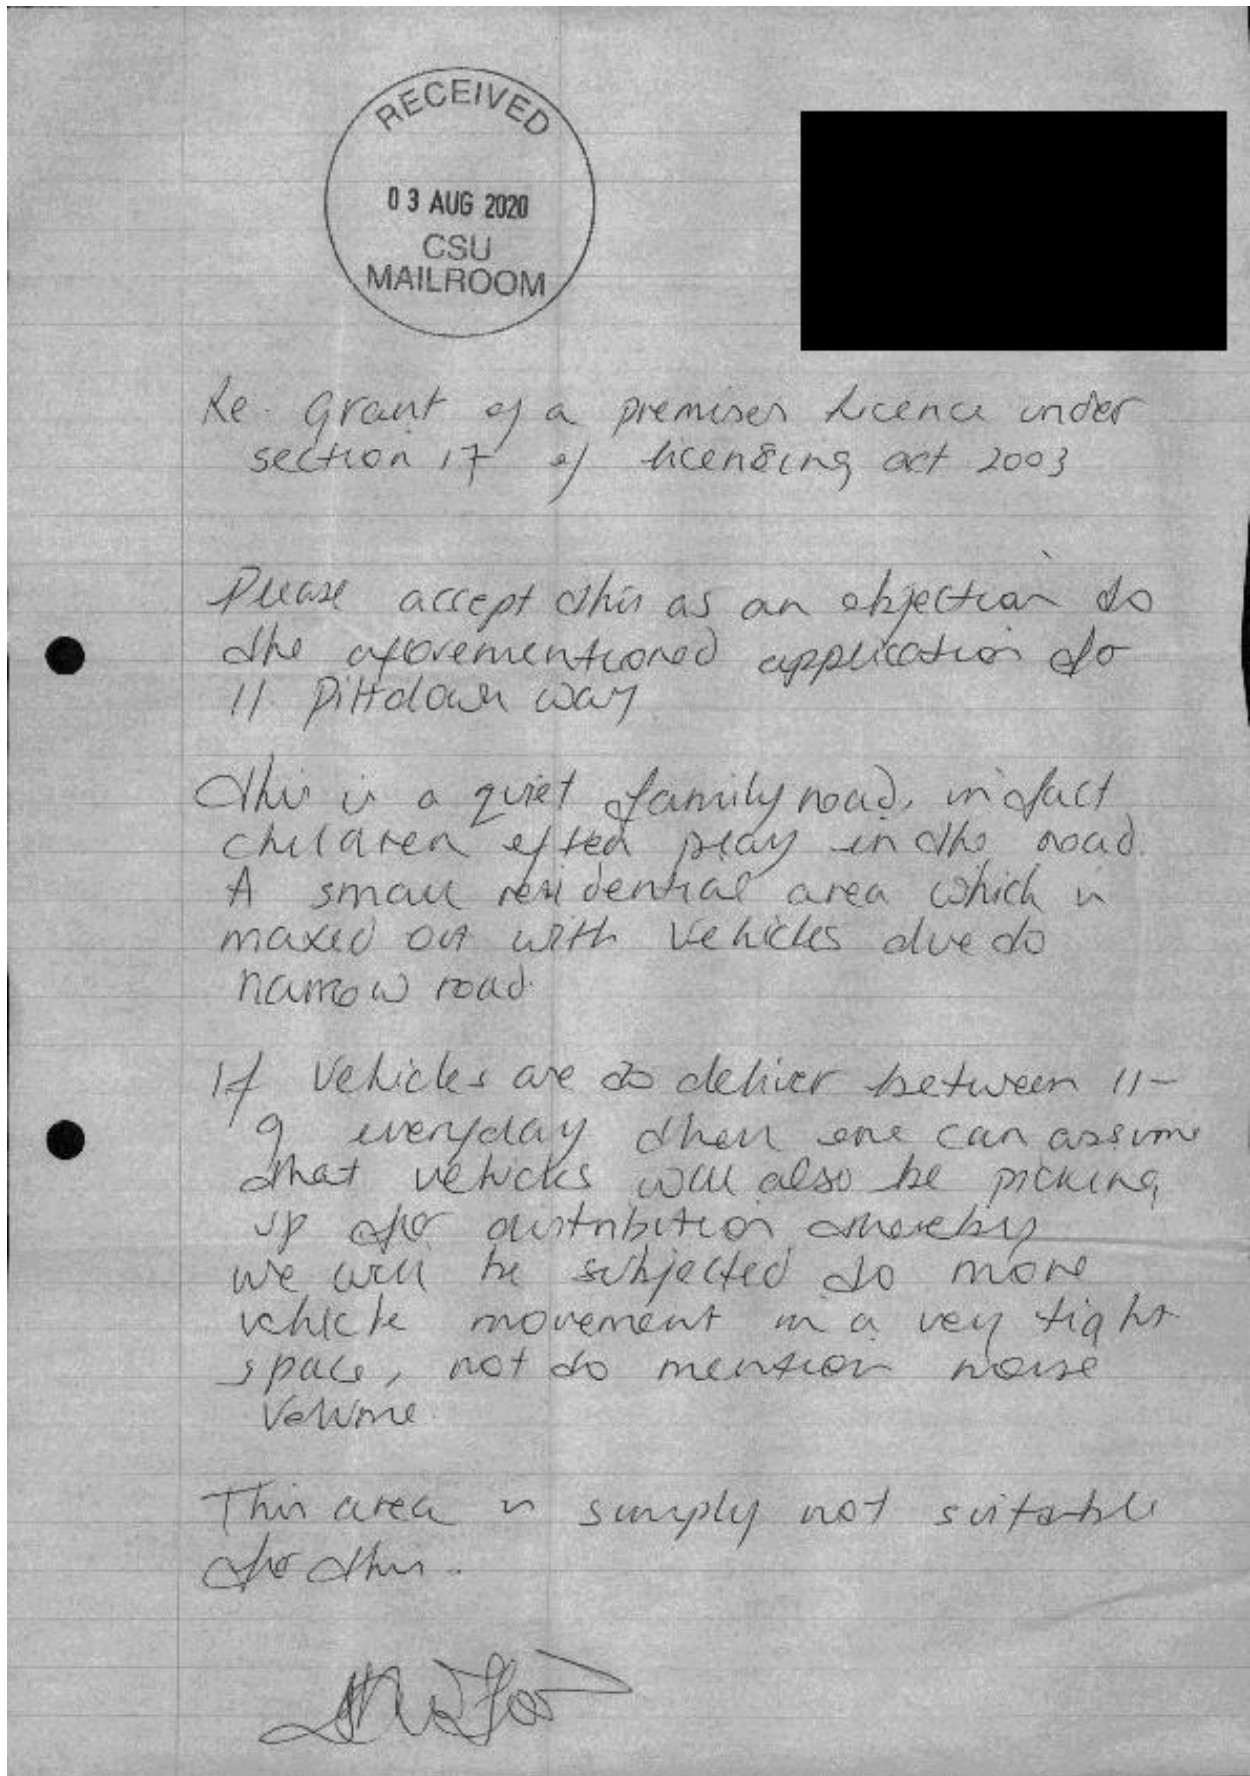 RECEIVED
03 AUG 2020
CSU
MAILROOM
Re. Grant of a premises licence under
section 17 of licensing act 2003
Please accept this as an objection to
the aforementioned application to
11 Piltdown way
This is a quiet family road, in fact
children often play in the road.
A small residential area which is
maxed out with vehicles due to
narrow road.
If vehicles are to deliver between 11-
9 everyday then one can assume
that vehicles will also be picking
up for distribution thereby
we will be subjected to more
vehicle movement in a very tight
space, not to mention noise
volume.
This area is simply not suitable
for this.